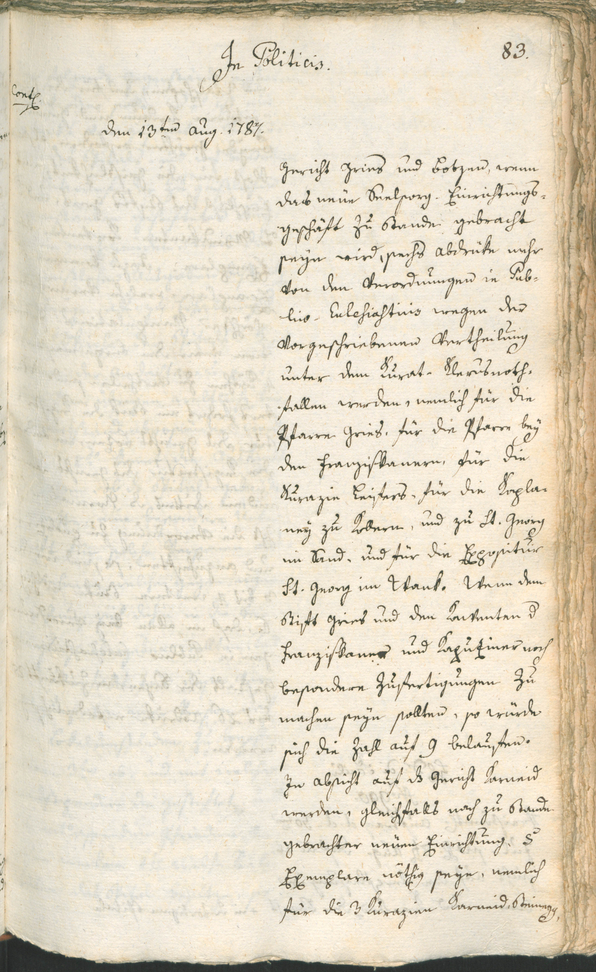 In Politicis.
83.
Cont.
den 13ten Aug. 1787.
Gericht Gries und Botzen, wenn
das neüe Seelsorg-Einrichtungs-
geschäft zu Stande gebracht
seyn wird, sechs Abdrüke mehr
von den Verordnungen in Pub-
lico-Eclesiasticis wegen der
vorgeschriebenen Vertheilung
unter dem Kurat-Klerus noth-
fallen werden, nemlich für die
Pfarre Gries, für die Pfarre bey
den Franziskanern, für die
Kurazie Leifers, für die Kapla-
ney zu Kollern, und zu St. Georg
im Sand, und für die Expositur
St. Georg im Wank. Wenn dem
Stift Gries und den Konventen d
Franziskaner und Kapuziner noch
besondere Zufertigungen zu
machen seyn sollten, so würde
sich die Zahl auf 9 belaufen.
In Absicht auf das Gericht Karneid
werden, gleichfalls nach zu Stande
gebrachter neuen Einrichtung, 5
Exemplare nöthig seyn, nemlich
für die 3 Kurazien Karneid,